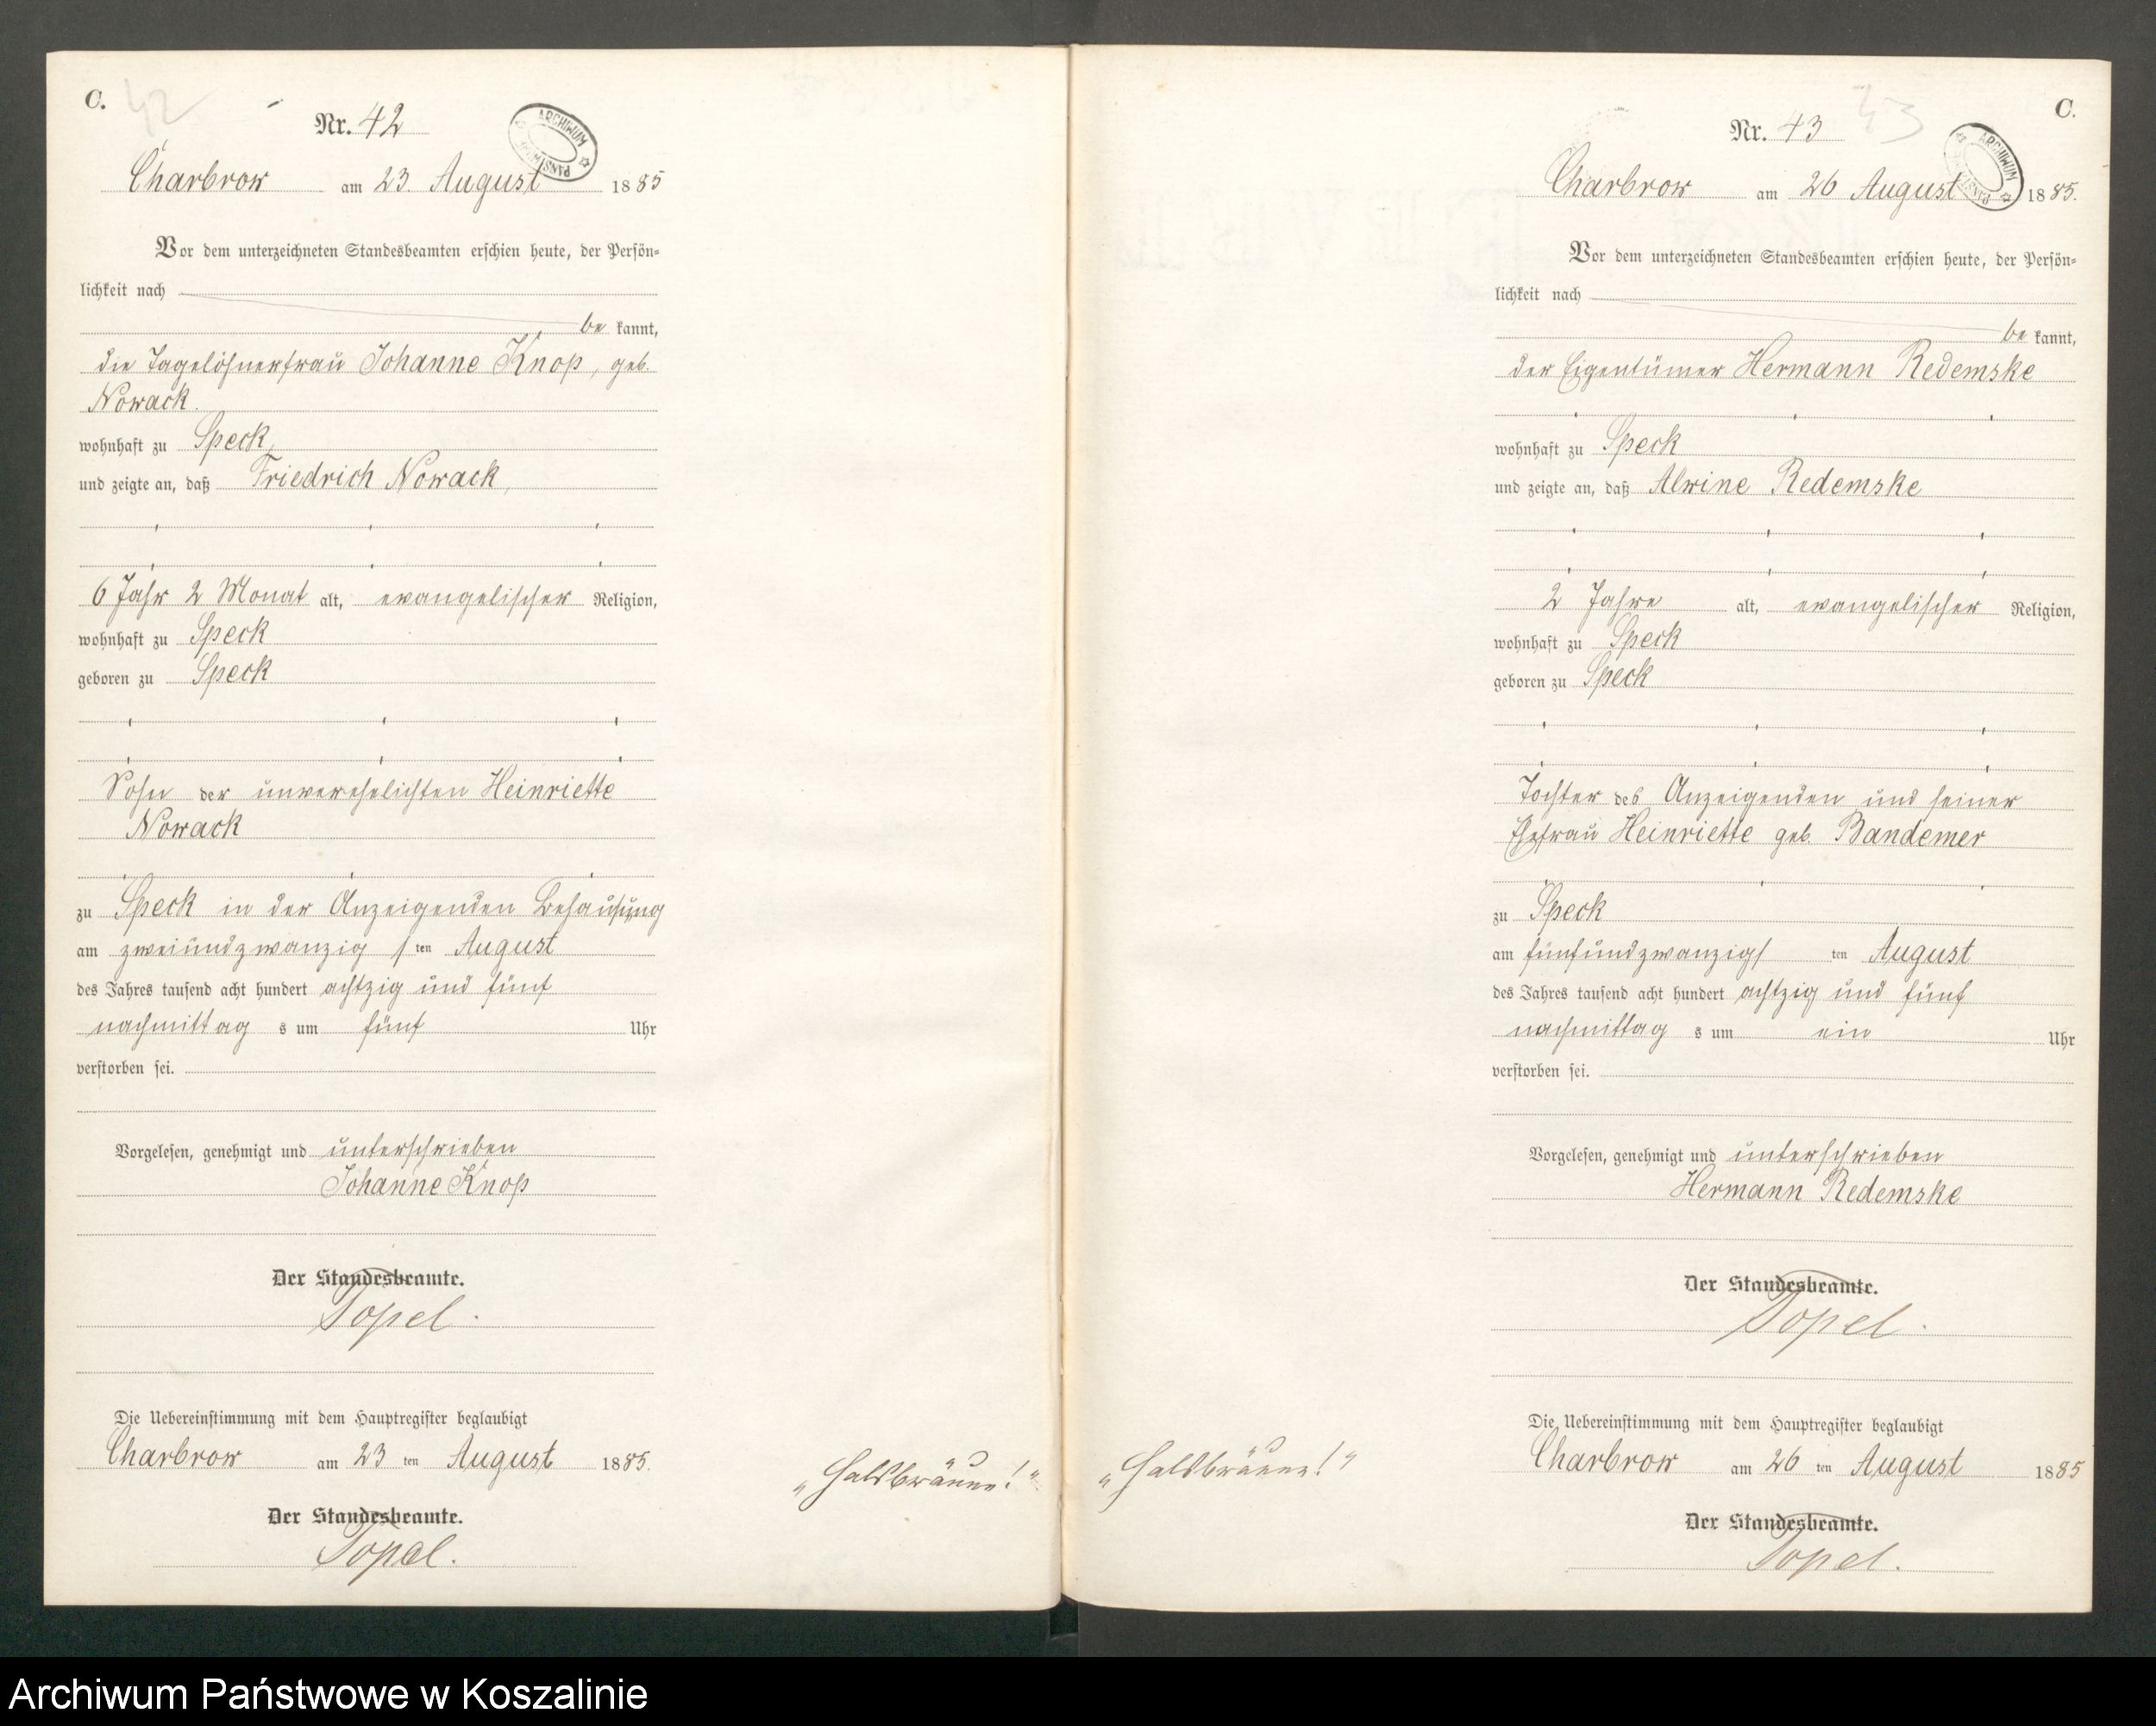 C.
42
Nr. 42
ARCHIWUM PAŃSTWOWE
Charbrow am 23. August 1885
Vor dem unterzeichneten Standesbeamten erschien heute, der Persön-
lichkeit nach
be kannt,
die Tagelöhnerfrau Johanne Knop, geb.
Nowack
wohnhaft zu Speck,
und zeigte an, daß Friedrich Nowack,
6 Jahr 2 Monat alt, evangelischer Religion,
wohnhaft zu Speck
geboren zu Speck
Sohn der unverehelichten Heinriette
Nowack
zu Speck in der Anzeigenden Behausung
am zweiundzwanzigsten August
des Jahres tausend acht hundert achtzig und fünf
nachmittag s um fünf Uhr
verstorben sei.
Vorgelesen, genehmigt und unterschrieben
Johanne Knop
Der Standesbeamte.
Topel.
Die Uebereinstimmung mit dem Hauptregister beglaubigt
Charbrow am 23 ten August 1885.
Der Standesbeamte.
Topel.
„Halsbräune!“
C.
43
Nr. 43
ARCHIWUM PAŃSTWOWE
Charbrow am 26 August 1885.
Vor dem unterzeichneten Standesbeamten erschien heute, der Persön-
lichkeit nach
be kannt,
der Eigentümer Hermann Redemske
wohnhaft zu Speck
und zeigte an, daß Alwine Redemske
2 Jahre alt, evangelischer Religion,
wohnhaft zu Speck
geboren zu Speck
Tochter des Anzeigenden und seiner
Ehefrau Heinriette geb. Bandemer
zu Speck
am fünfundzwanzigs ten August
des Jahres tausend acht hundert achtzig und fünf
nachmittag s um ein Uhr
verstorben sei.
Vorgelesen, genehmigt und unterschrieben
Hermann Redemske
Der Standesbeamte.
Topel.
Die Uebereinstimmung mit dem Hauptregister beglaubigt
Charbrow am 26 ten August 1885
Der Standesbeamte.
Topel.
„Halsbräune!“
Archiwum Państwowe w Koszalinie